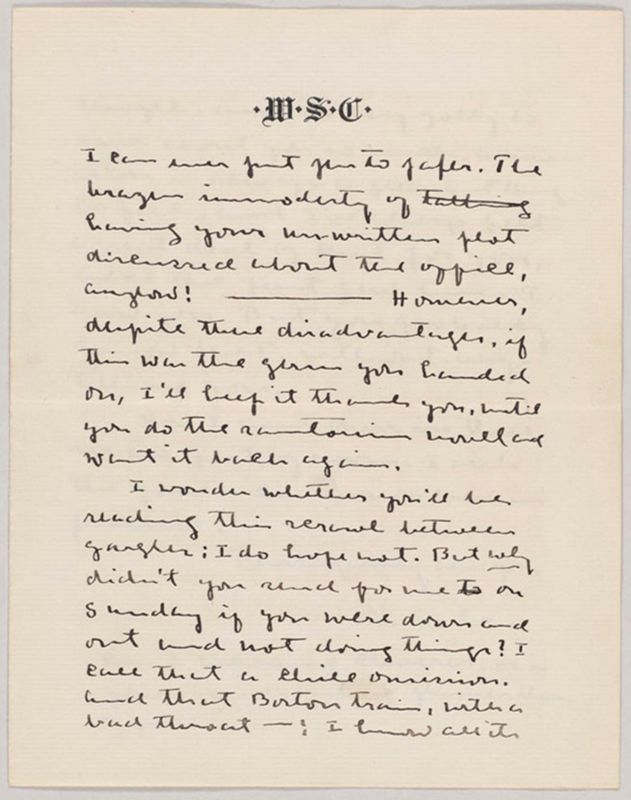 ·W·S·C·
I can ever put pen to paper. The
brazen immodesty of talking
having your unwritten plot
discussed about the office,
anyhow! ——— However,
despite these disadvantages, if
this was the germ you handed
on, I'll keep it thank you, until
you do the sanitorium novel and
want it back again.
I wonder whether you'll be
reading this scrawl between
gargles; I do hope not. But why
didn't you send for me to on
Sunday if you were down and
out and not doing things? I
call that a omission.
And that Boston train, with a
bad throat —! I know all its